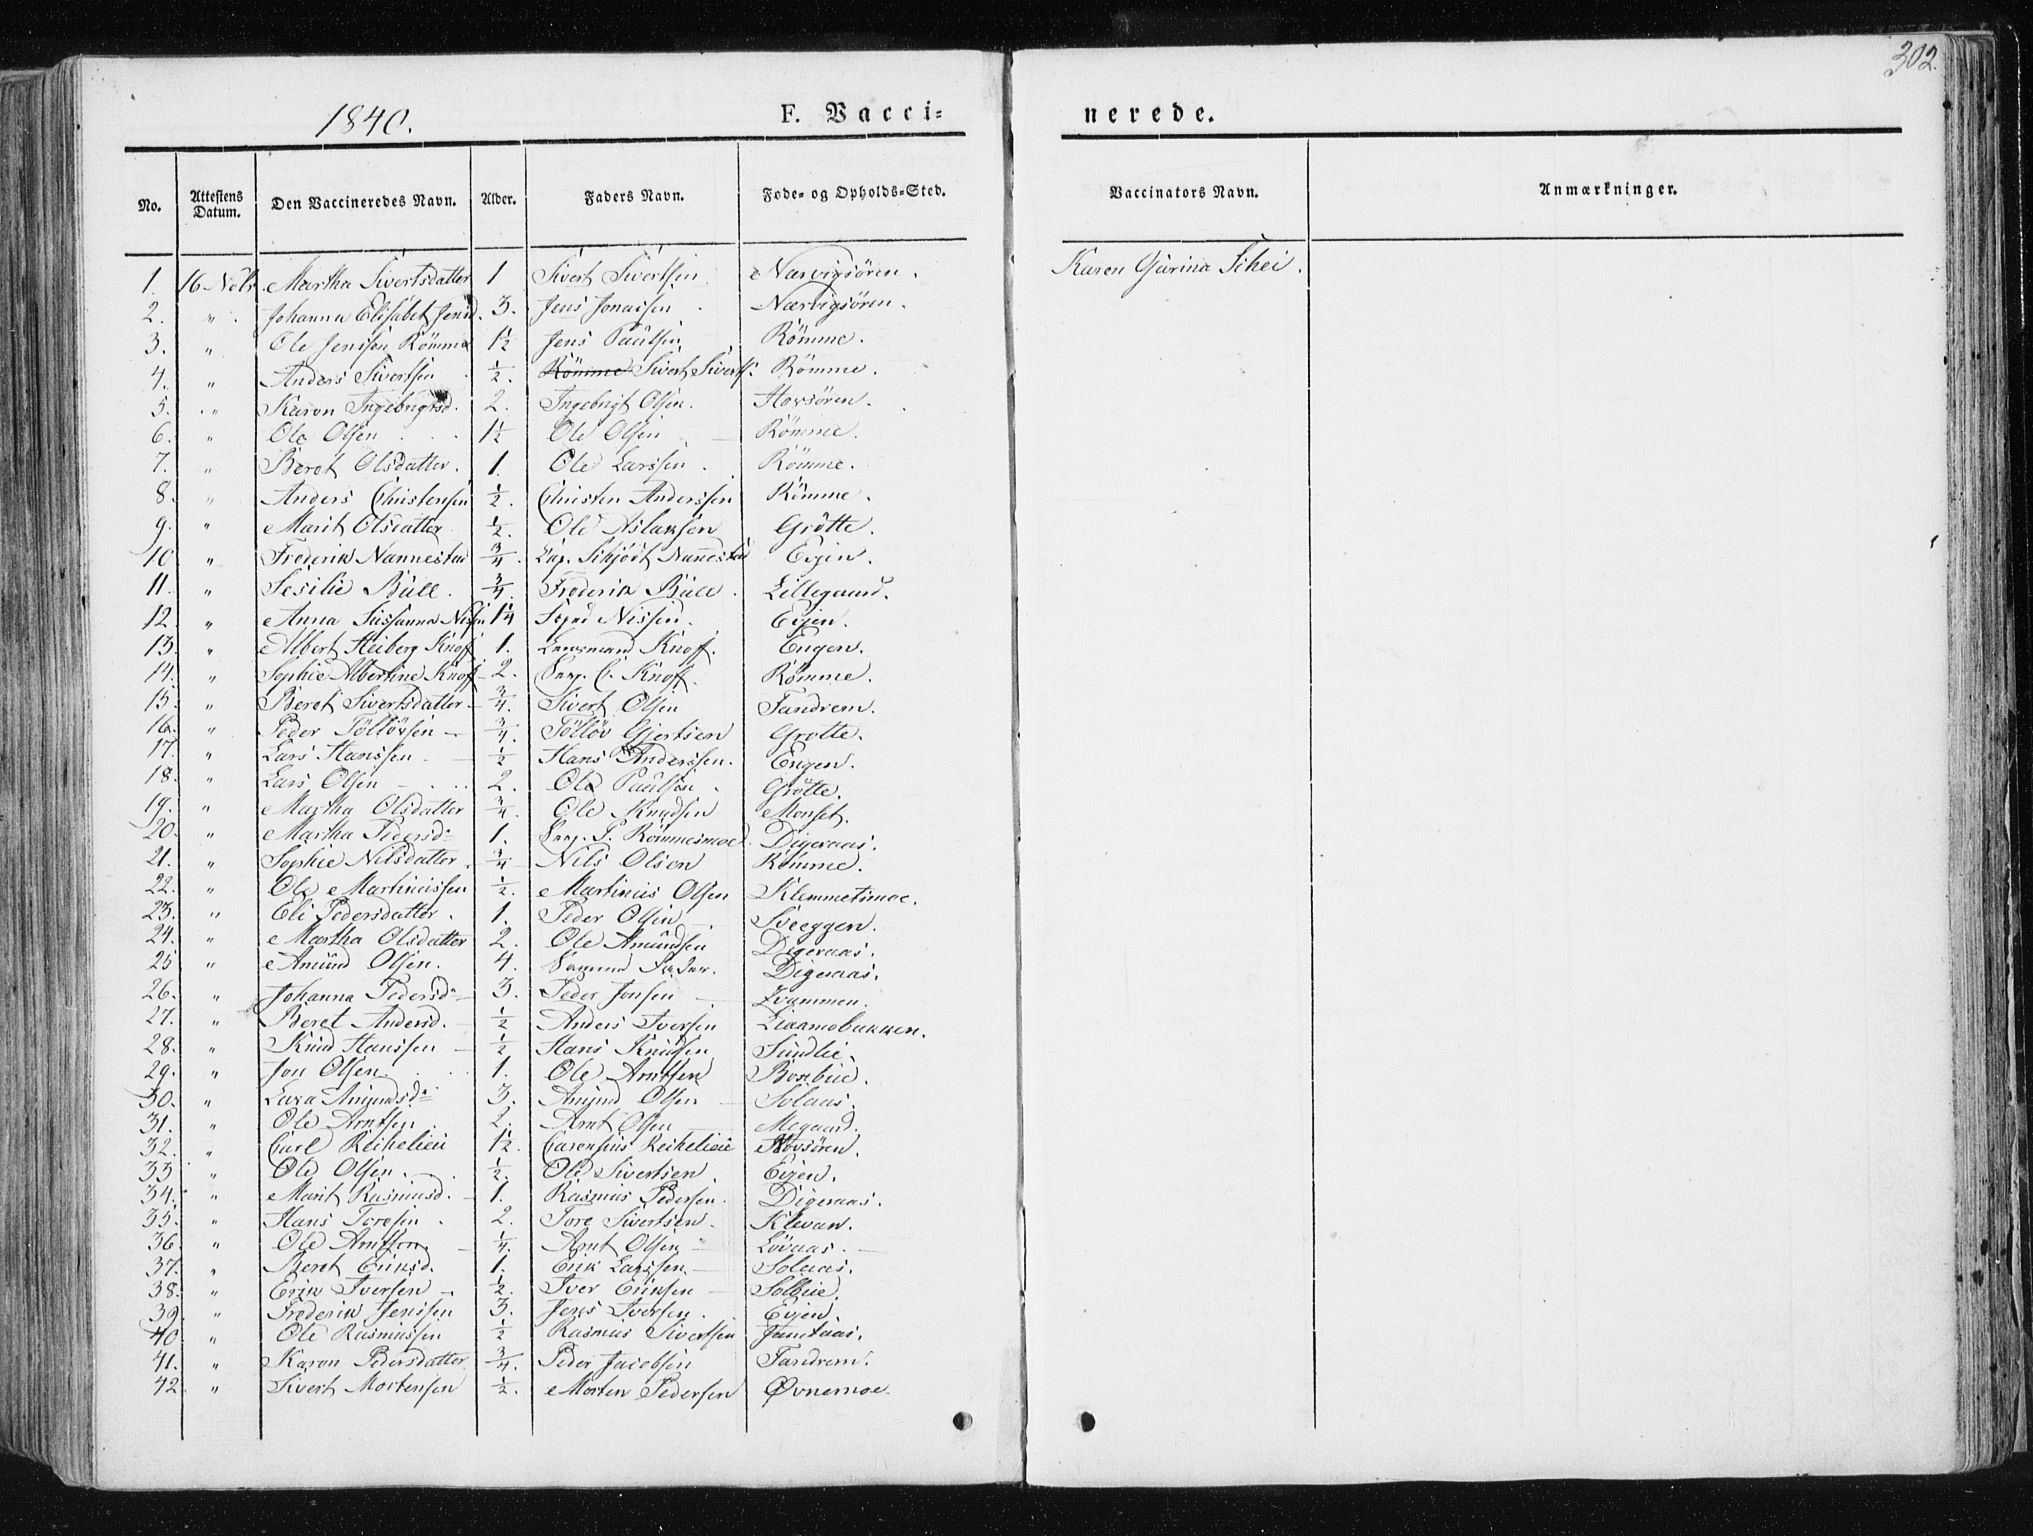 302.
1840. F. Vacci= nerede.
No. Attestens Datum. Den Vaccineredes Navn. Alder. Faders Navn. Føde- og Opholds-Sted. Vaccinators Navn. Anmærkninger.
1. 16 Nobr. Martha Sivertsdatter 1 Sivert Sivertsen Nærvigsören. Karen Gurina Schei.
2. " Johanna Elisabet Jensd. 3. Jens Jonassen Nærvigsören.
3. " Ole Jenssen Römme 1½ Jens Paulsen Römme.
4. " Anders Sivertsen ½. Römme Sivert Siverts: Römme.
5. " Karen Ingebrigtsd. 2. Ingebrigt Olsen. Hovsören.
6. " Ole Olsen 1½ Ole Olsen Römme.
7. " Beret Olsdatter. 1. Ole Larssen. Römme.
8. " Anders Christensen ½. Christen Anderssen Römme.
9. " Marit Olsdatter ½. Ole Aslaksen Grötte.
10 " Frederik Nannestad ¾. Cap. Schjödt Nannestad Evjen.
11. " Sesilie Büll. ¾. Frederik Büll. Lillegaard.
12. " Anna Sussanna Nissen 1¼ Fogd Nissen. Evjen.
13. " Albert Heiberg Knoff 1. Lensmand Knoff. Engen.
14. " Sophie Albertine Knoff 2. Serg. C. Knoff. Römme.
15. " Beret Sivertsdatter ¾. Sivert Olsen Tandrem.
16. " Peder Töllövsen ¾. Töllöv Gjertsen Grotte.
17. " Lars Hanssen ½ Hans Anderssen. Engen.
18. " Lars Olsen 2. Ole Paulsen. Grötte.
19. " Martha Olsdatter ¾. Ole Knudsen Monset.
20. " Martha Pedersd: 1. Serg. P. Römmesmoe. Digeraas.
21. " Sophie Nilsdatter. ¾ Nils Olsen Römme.
22. " Ole Martinussen ½. Martinus Olsen Klemmetsmoe.
23. " Eli Pedersdatter. 1. Peder Olsen Sveeggen.
24. " Martha Olsdatter 2. Ole Amundsen Digeraas.
25 " Amund Olsen. 4. Samme Fader. Digeraas.
26. " Johanna Pedersd: 3. Peder Jonsen Kvammen.
27. " Beret Andersd. ½ Anders Iversen Liaamobakken.
28. " Knud Hanssen ½ Hans Knudsen Sundlie.
29. " Jon Olsen. 1. Ole Arntsen Borkhue.
30. " Lava Amundsd: 3. Amund Olsen Solaas.
31. " Ole Arntsen 2. Arnt Olsen Megaard.
32. " Carl Reichelieu 1½. Reichelieu Hovsören.
33 " Ole Olsen. ½. Ole Sivertsen. Evjen.
34. " Marit Rasmusd. 1. Rasmus Pedersen. Digeraas.
35. " Hans Toresen 2. Tore Sivertsen. Klevan.
36. " Ole Arntsen. ¼. Arnt Olsen Lövaas.
37. " Beret Eriksd. 1. Erik Larssen. Solaas.
38. " Erik Iversen ½. Iver Eriksen Solbue.
39. " Frederik Jenssen 3. Jens Iversen. Evjen.
40 " Ole Rasmussen ½ Rasmus Sivertsen Jamtaas.
41. " Karen Pedersdatter ¾. Peder Jacobsen Tandrem.
42. " Sivert Mortensen ½. Morten Pedersen Øvnemoe.